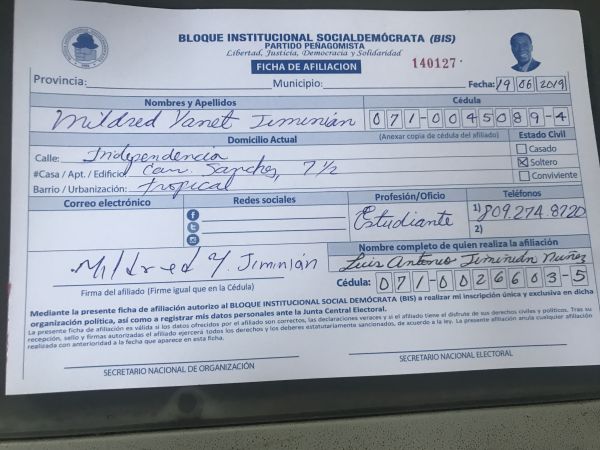 BLOQUE INSTITUCIONAL SOCIALDEMÓCRATA (BIS)
PARTIDO PEÑAGOMISTA
Libertad, Justicia, Democracia y Solidaridad
FICHA DE AFILIACION
140127
Provincia: Municipio: Fecha: 19 06 2019
Nombres y Apellidos Cédula
Mildred Yanet Jiminián 071-0045089-4
Domicilio Actual (Anexar copia de cédula del afiliado) Estado Civil
Calle: Independencia Casado
#Casa / Apt. / Edificio Can. Sanchez, 7 1/2 Soltero
Barrio / Urbanización: Tropical Conviviente
Correo electrónico Redes sociales Profesión/Oficio Teléfonos
Estudiante 1) 809.274.8720
2)
Nombre completo de quien realiza la afiliación
Mildred Y. Jiminián Luis Antonio Jiminián Nuñez
Firma del afiliado (Firme igual que en la Cédula) Cédula: 071-0026603-5
Mediante la presente ficha de afiliación autorizo al BLOQUE INSTITUCIONAL SOCIAL DEMÓCRATA (BIS) a realizar mi inscripción única y exclusiva en dicha
organización política, así como a registrar mis datos personales ante la Junta Central Electoral.
La presente ficha de afiliación es válida si los datos ofrecidos por el afiliado son correctos, las declaraciones veraces y si el afiliado tiene el disfrute de sus derechos civiles y políticos. Tras su
recepción, sello y firmas autorizadas el afiliado ejercerá todos los derechos y los deberes estatutariamente sancionados, de acuerdo a la ley. La presente afiliación anula cualquier afiliación
realizada con anterioridad a la fecha que aparece en esta ficha.
SECRETARIO NACIONAL DE ORGANIZACIÓN SECRETARIO NACIONAL ELECTORAL